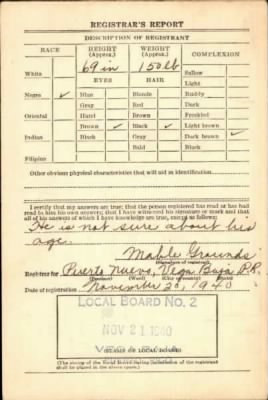 REGISTRAR'S REPORT
DESCRIPTION OF REGISTRANT
RACE HEIGHT (Approx.) WEIGHT (Approx.) COMPLEXION
69 in 150 lb
White Sallow
EYES HAIR Light
Negro ✓ Blue Blonde Ruddy
Gray Red Dark
Oriental Hazel Brown Freckled
Brown ✓ Black ✓ Light brown
Indian Black Gray Dark brown ✓
Bald Black
Filipino
Other obvious physical characteristics that will aid in identification
I certify that my answers are true; that the person registered has read or has had read to him his own answers; that I have witnessed his signature or mark and that all of his answers of which I have knowledge are true, except as follows:
He is not sure about his
age.
Mable Grounds
(Signature of registrar)
Registrar for Puerto Nuevo, Vega Baja P.R.
(Precinct) (Ward) (City or county) (State)
Date of registration November 20, 1940
LOCAL BOARD No. 2
NOV 21 1940
(STAMP OF LOCAL BOARD)
(The stamp of the Local Board having jurisdiction of the registrant shall be placed in the above space.)